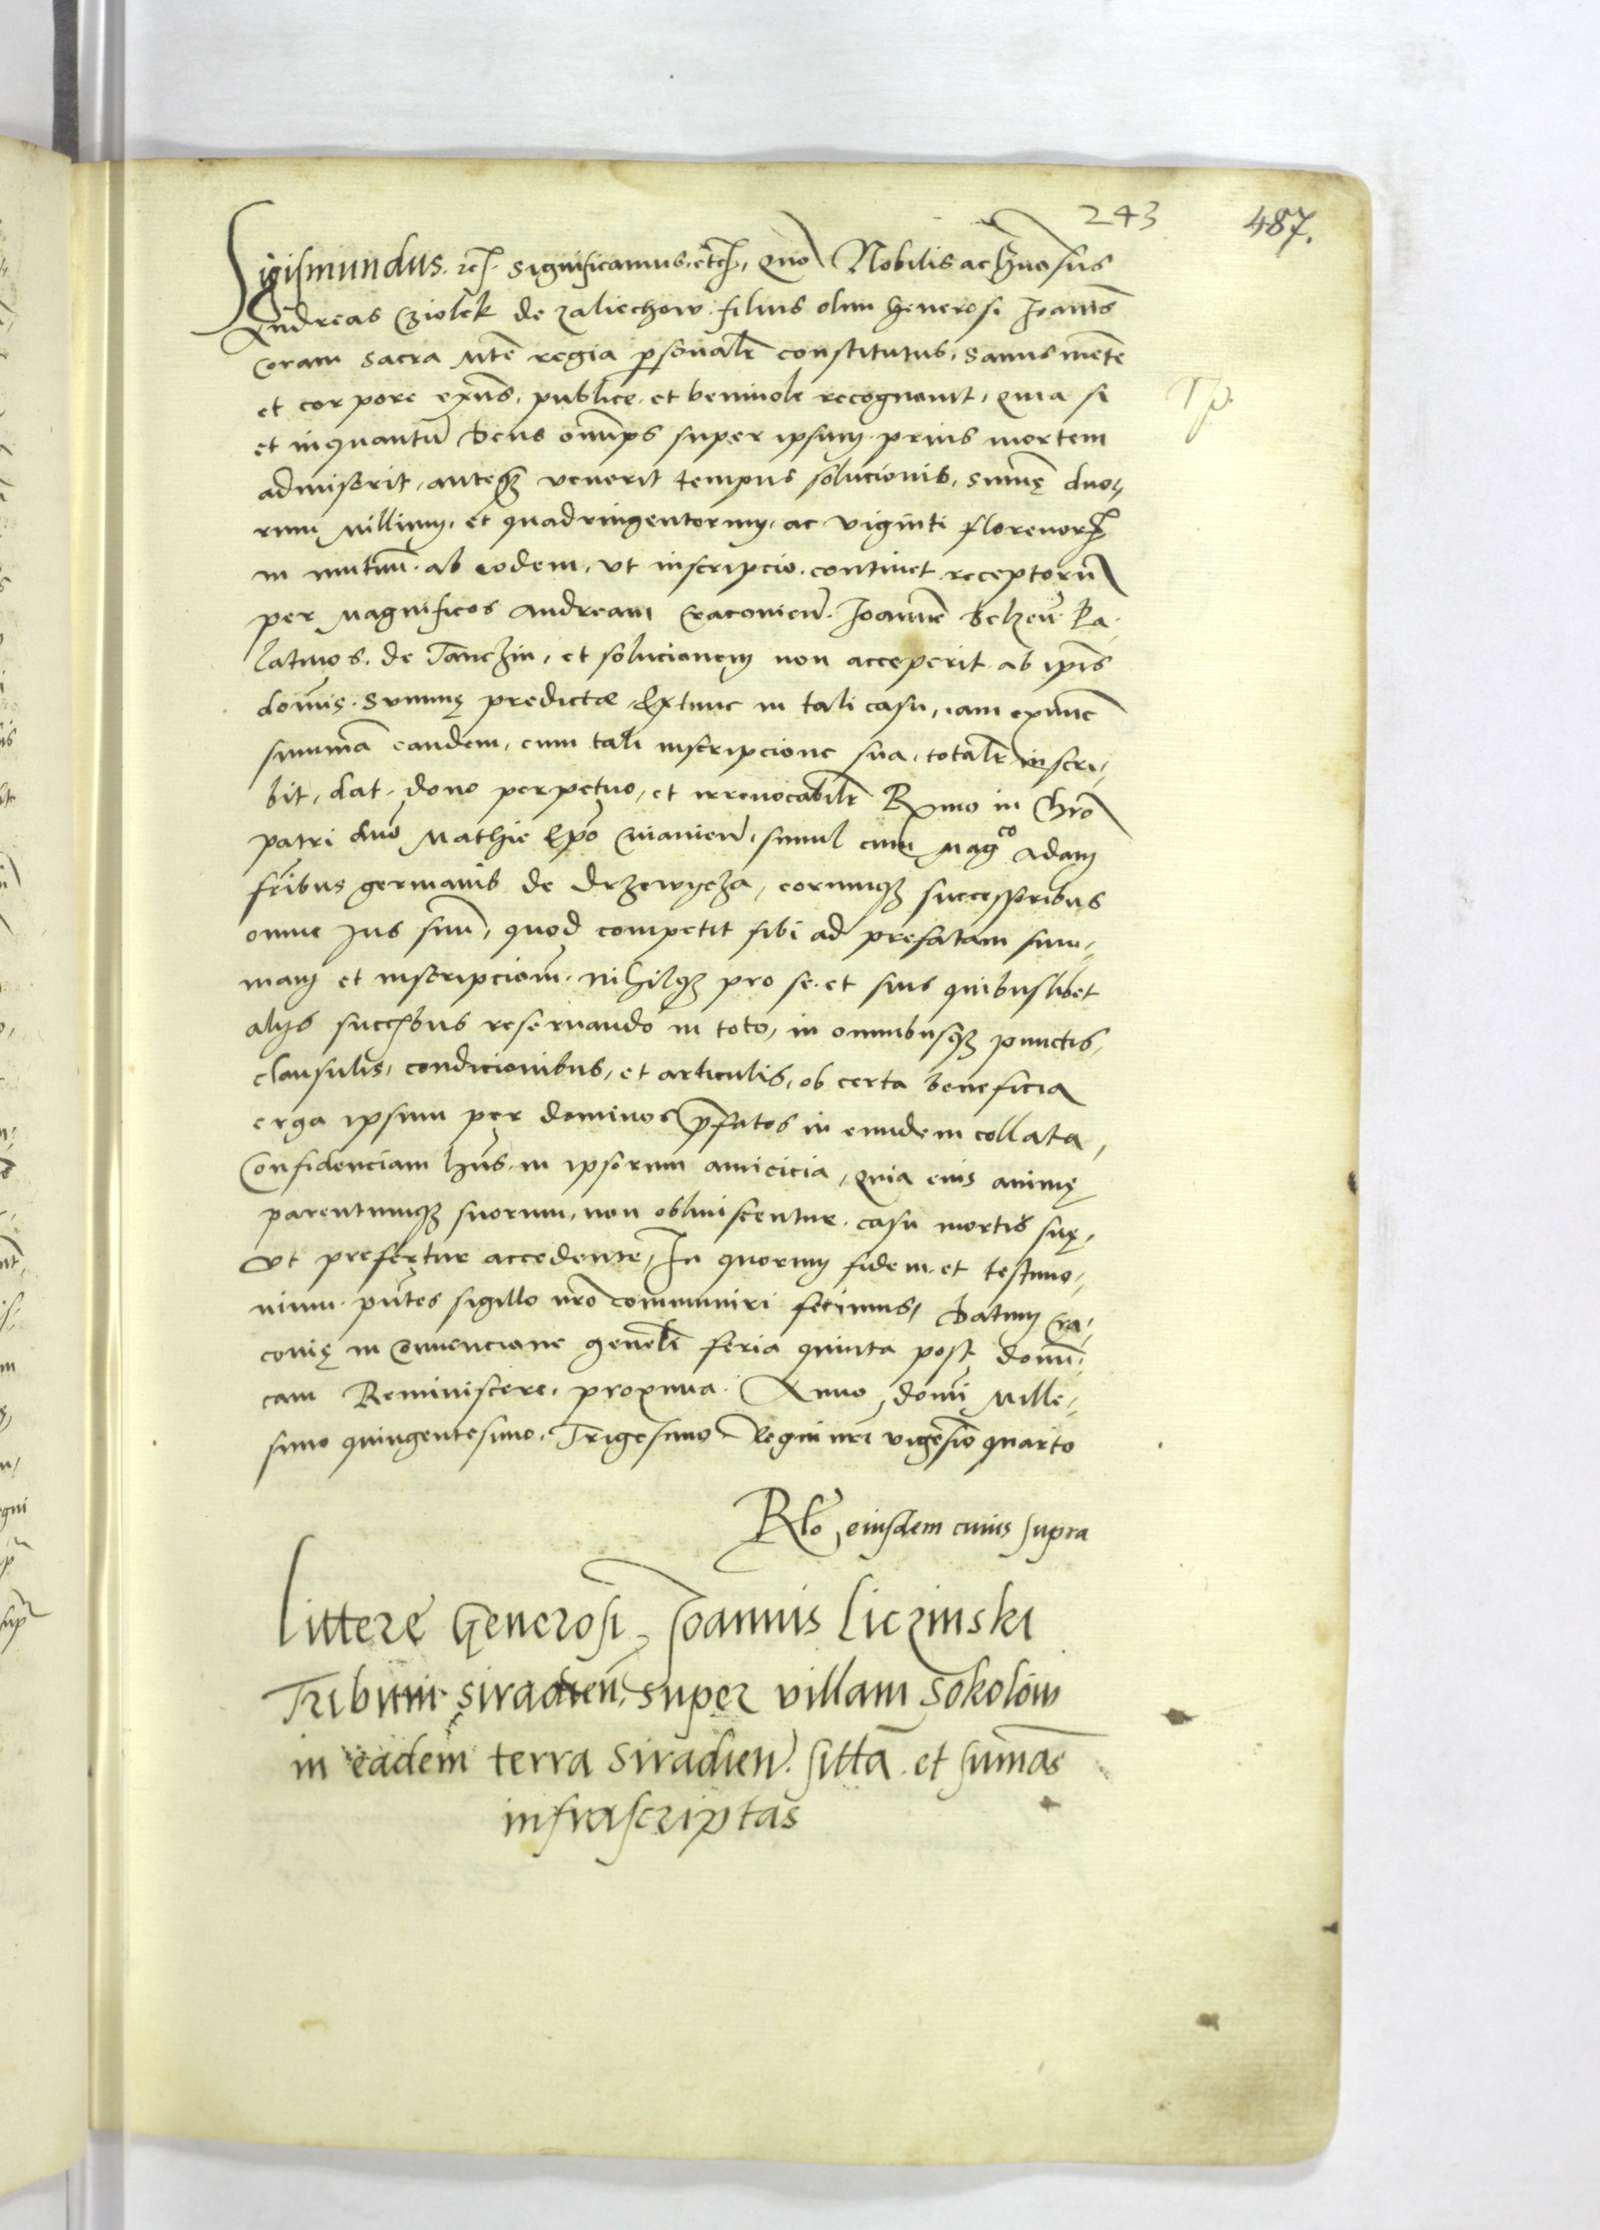 243 487.
Sigismundus. etc. significamus. etc. Quō Nobilis ac
Andreas Cziolek de zaliechow. filius olim Generosi Joānis
Coram sacra Mte regia psonalr constitutus, sanus mente
et corpore exns, publice et benivole recognovit, quia si
et inquantū Deus omps super ipsum prius mortem
admiserit, anteqz venerit tempus solucionis, summę duo,
rum Millium, et quadringentorum, ac viginti florenor
in mutuū ab eodem, ut inscripcio continet receptorū
per Magnificos Andream Cracovień. Joannē Belzeń. Pa,
latinos. de Tanczin, et solucionem non acceperit ab ipīs
domīs. summę predictae, Extunc in tali casu, iam exnunc
summā eandem, cum tali inscripcione sua, totalr inscri,
bit, dat, dono perpetuo, et irrevocabilr Rximo in Chrō
patri dnō Mathie Epō Cuiavień, simul cum Magco Adam
frībus germanis de Drzewycza, eorumqz successoribus
omne Jus suū, quod competit sibi ad prefatam sum,
mam et inscripcionē. Nihilqz pro se et suis quibuslibet
alijs succbus reservando in toto, in omnibusqz punctis,
clausulis, condicionibus, et articulis, ob certa beneficia
erga ipsum per dominos pfatos in eundem collata,
Confidenciam hns. in ipsorum amicicia, quia eius animę
parentumqz suorum, non obliviscentur. casu mortis suę,
Ut prefertur accedente, In quorum fidem et testimo,
nium. pntes sigillo nrō communiri fecimus, Datum Cra,
covię in Convencione genrli feria quinta post domi,
cam Reminiscere, proxima. Anno domī Mille,
simo quingentesimo, Trigesimo Regni nrī vigesīo quarto
Rlo eiusdem cuius supra
Litterę Generosi Joannis Liczinski
Tribuni siradień, super villam Sokolow
in eadem terra Siradień. sittā et sumas
infrascriptas